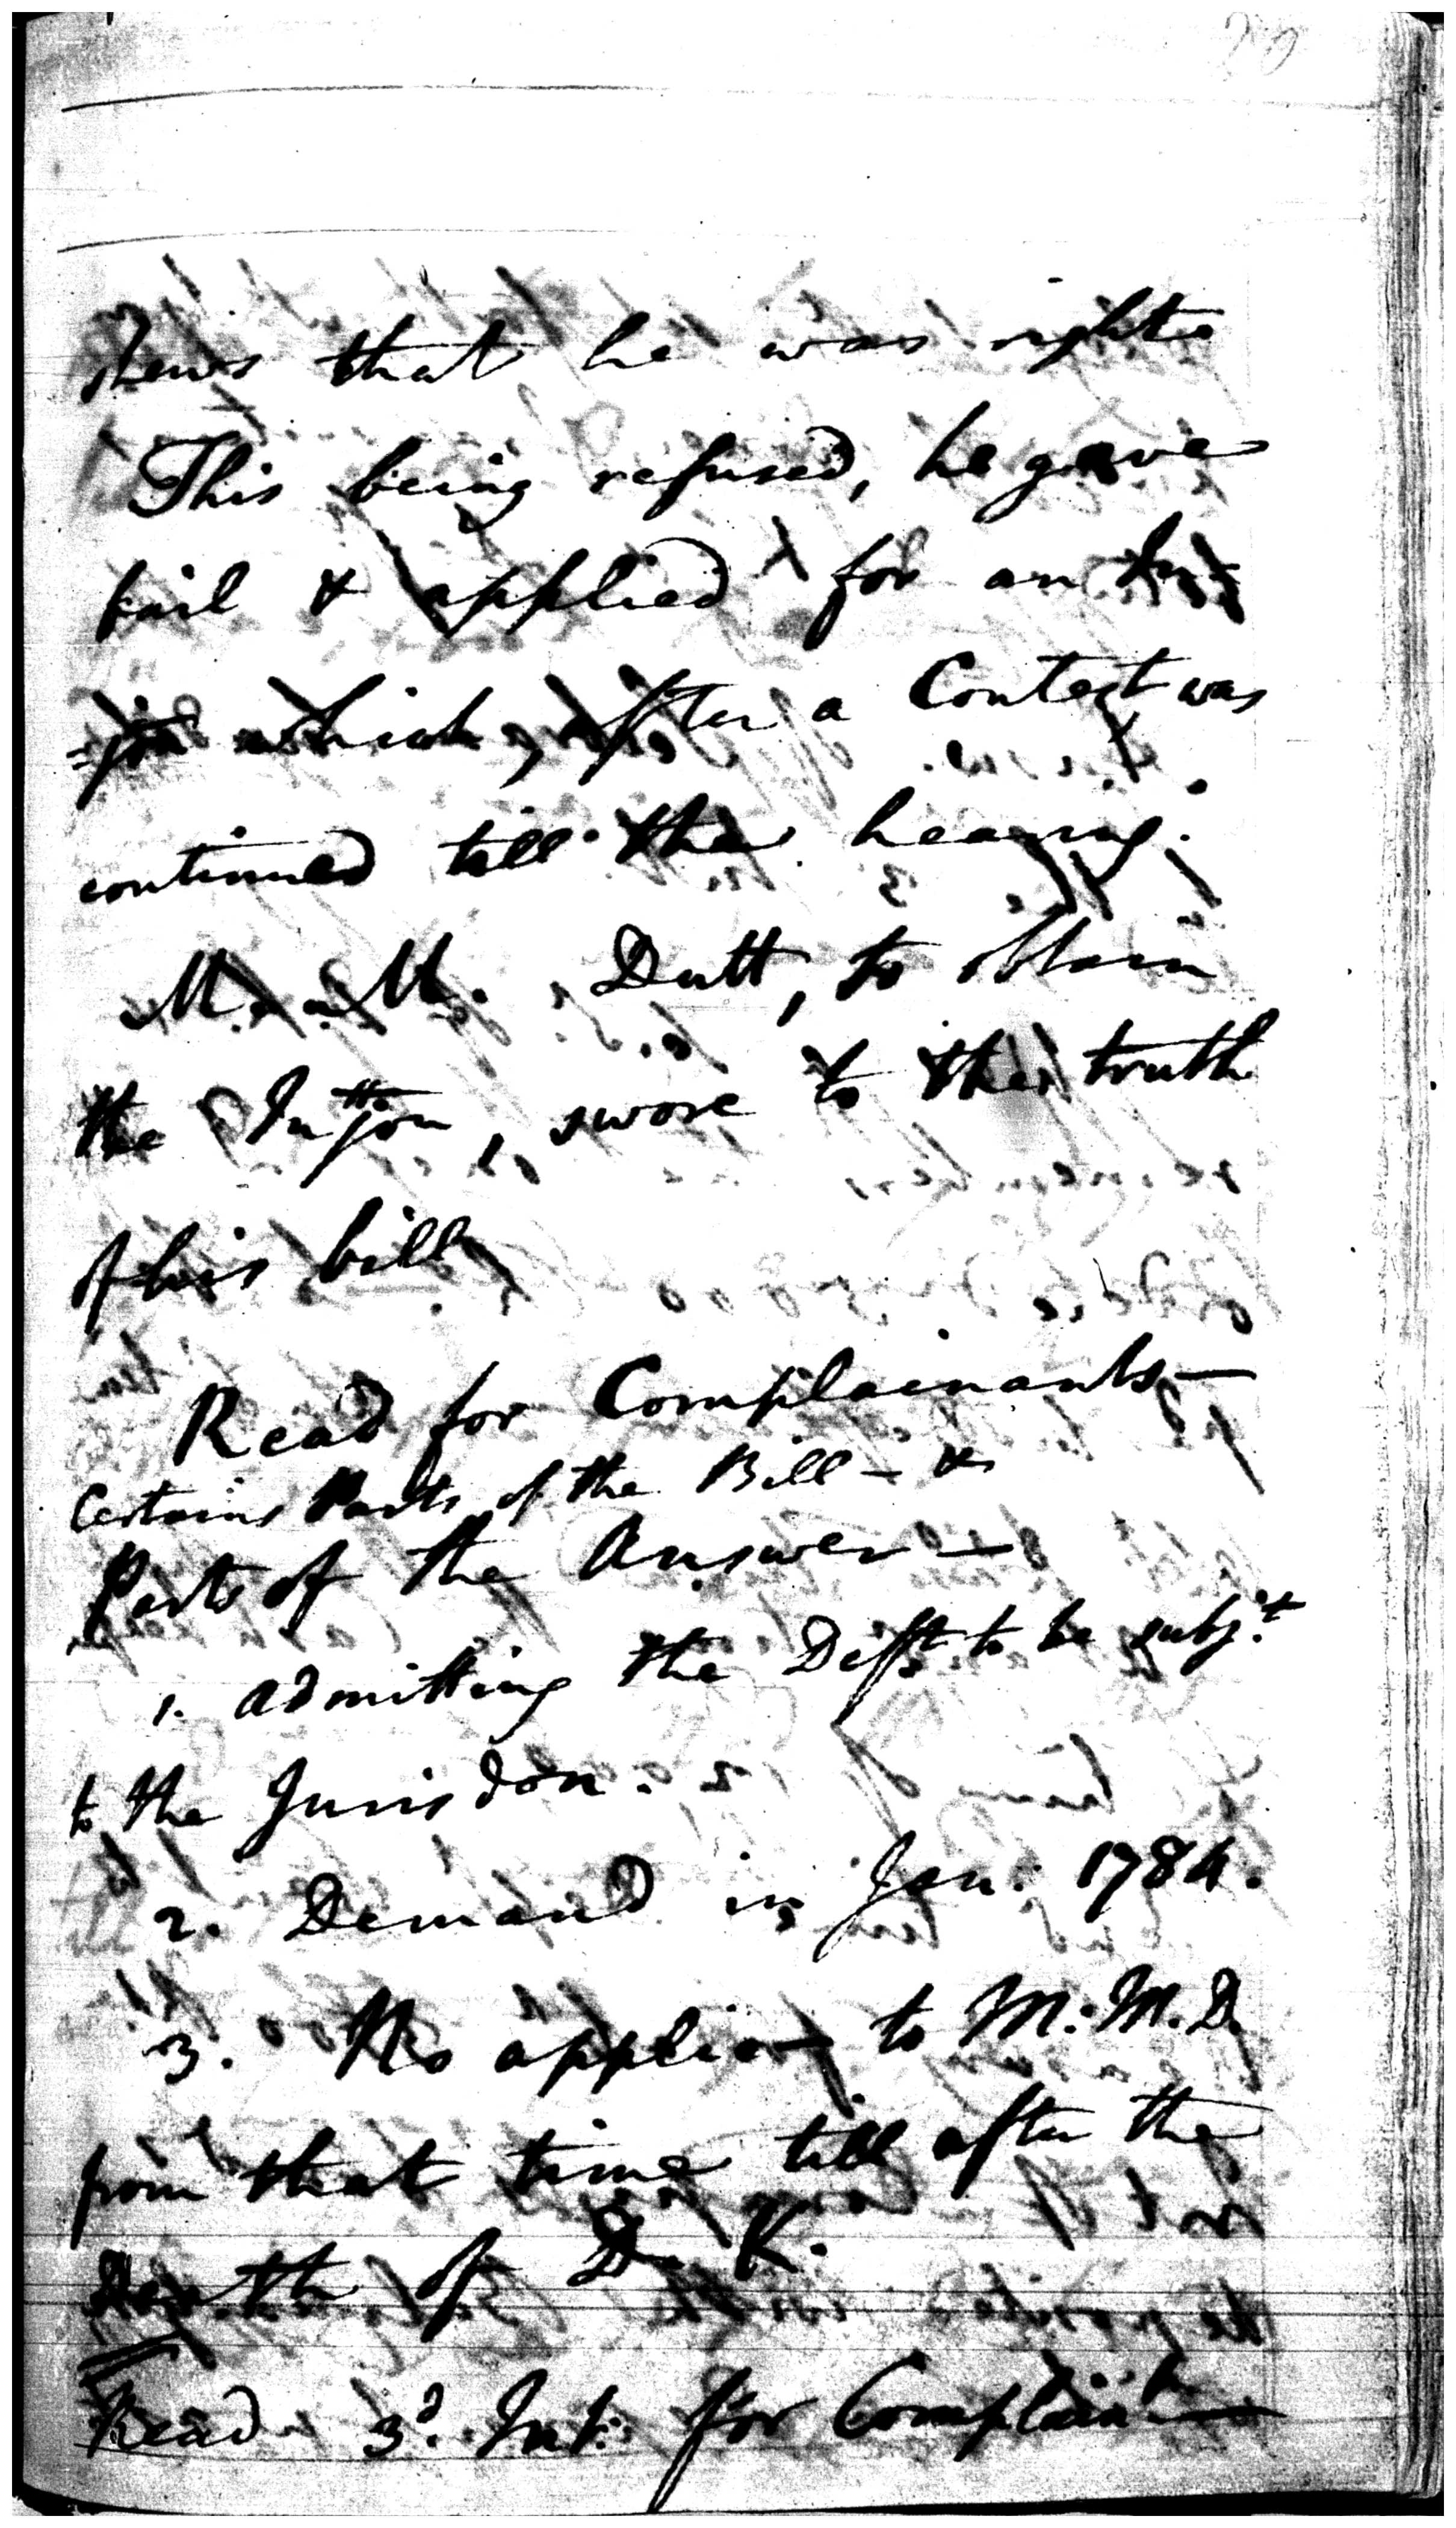 shews that he was right.
This being refused, he gave
bail & applied for an In=
=jon which, after a Contest was
continued till the hearing.
M. M. Dutt, to obtain
the Injon, swore to the truth
of his bill
Read for Complainants —
Certain Parts of the Bill — &
Parts of the Answer —
1. admitting the Defft. to be subj.t
to the Jurisdon.
2. Demand in Jan: 1784.
3. No applion to M. M. D.
from that time till after the
Death of D. K.
Read 3d. Int: for Complain.ts